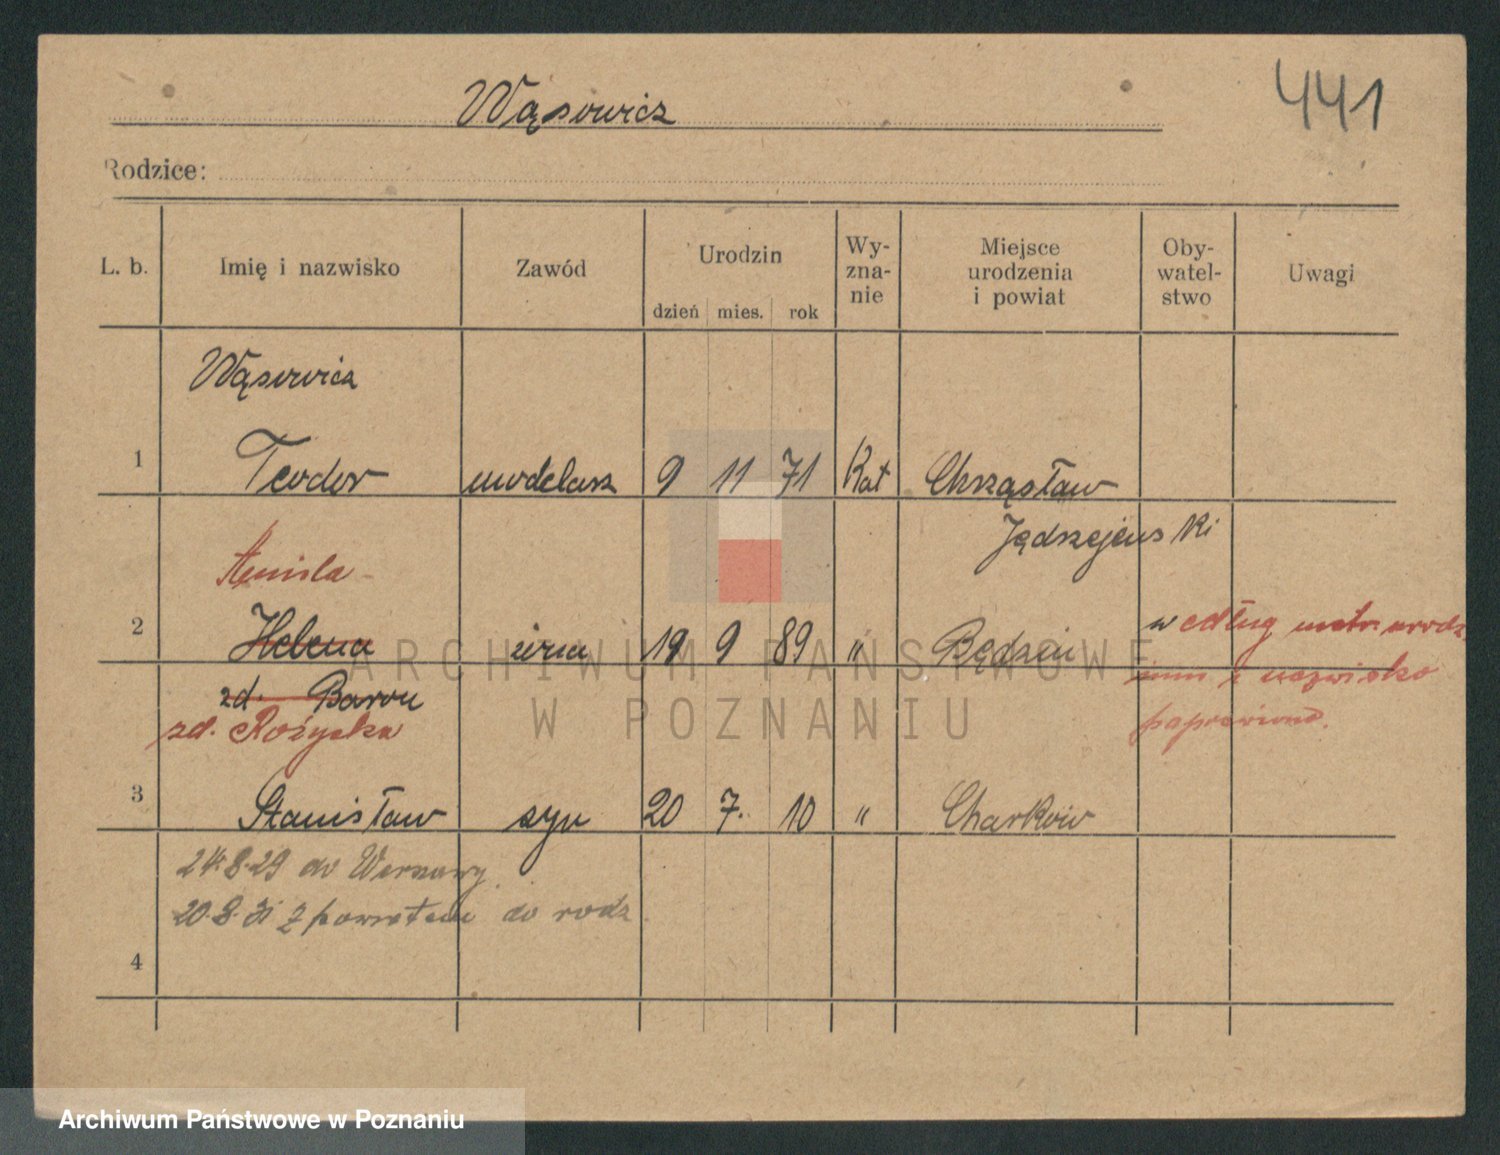 Wąsowicz
441
Rodzice:
L. b.
Imię i nazwisko
Zawód
Urodzin
dzień mies. rok
Wy-
zna-
nie
Miejsce
urodzenia
i powiat
Oby-
watel-
stwo
Uwagi
Wąsowicz
1 Teodor modelarz 9 11 71 Kat Chrząstaw
Jędrzejewski
2 Helena żona 19 9 89 " Będzin
zd. Baron
zd. Rożycka
według metr. urodz
imie i nazwisko
poprawiono.
3 Stanisław syn 20 7. 10 " Charków
24.8.29 do Warszawy.
20.8.31 z powrotem do rodz.
4
ARCHIWUM PAŃSTWOWE
W POZNANIU
Archiwum Państwowe w Poznaniu